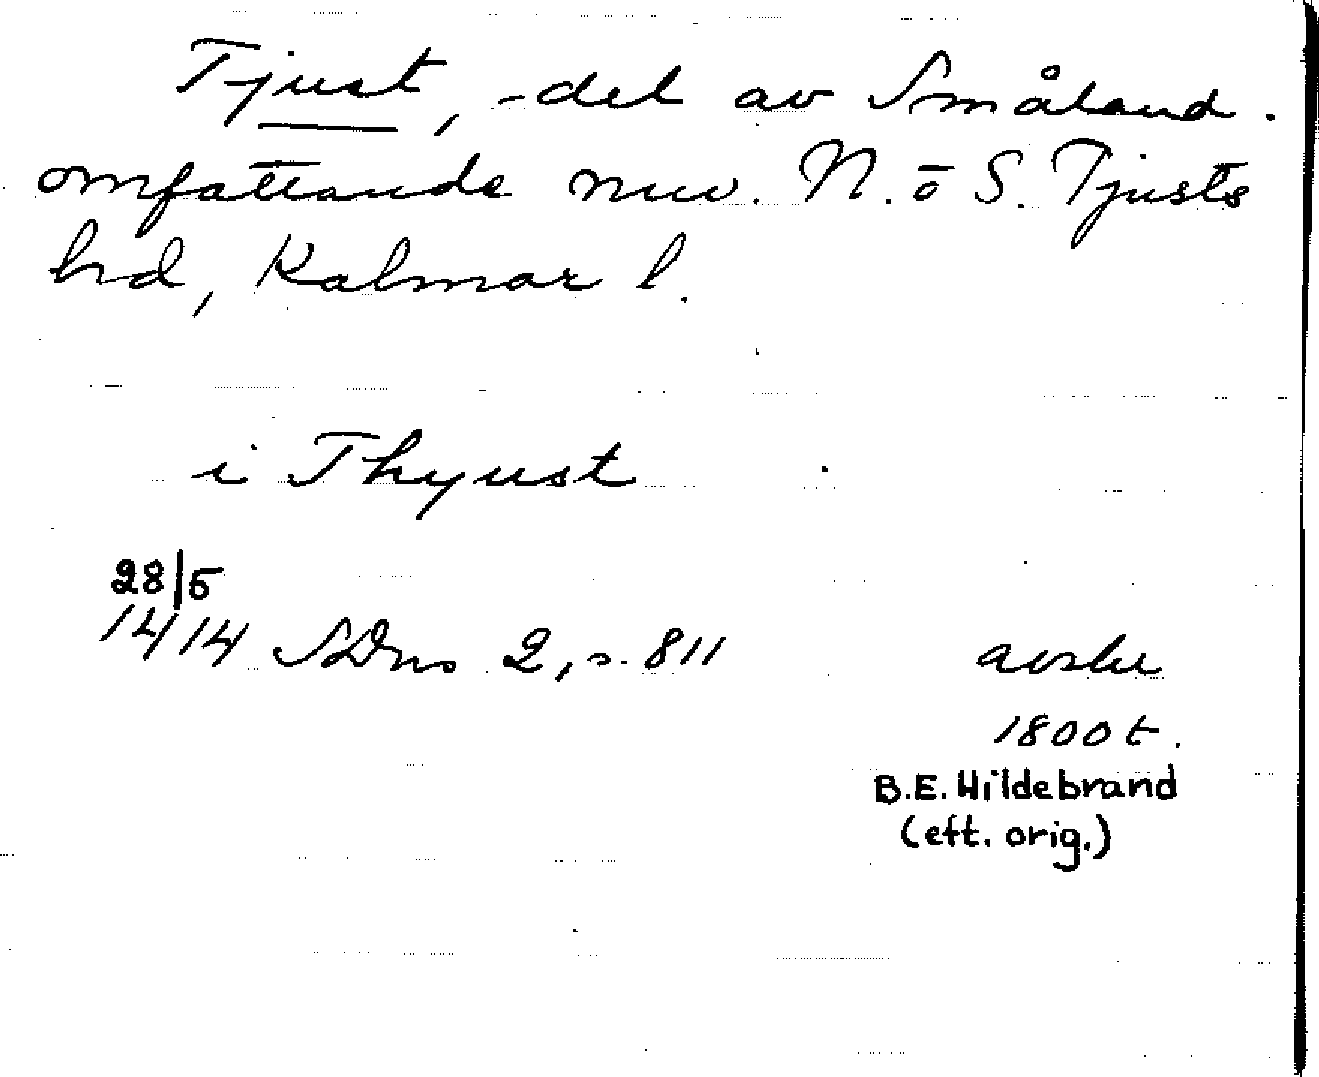 Tjust, -del av Småland.
omfattande nuv. N. o S. Tjusts
hd, Kalmar l.
i Thyust
28/5
1414 SDns 2, s. 811
avskr
1800 t.
B.E. Hildebrand
(eft. orig.)